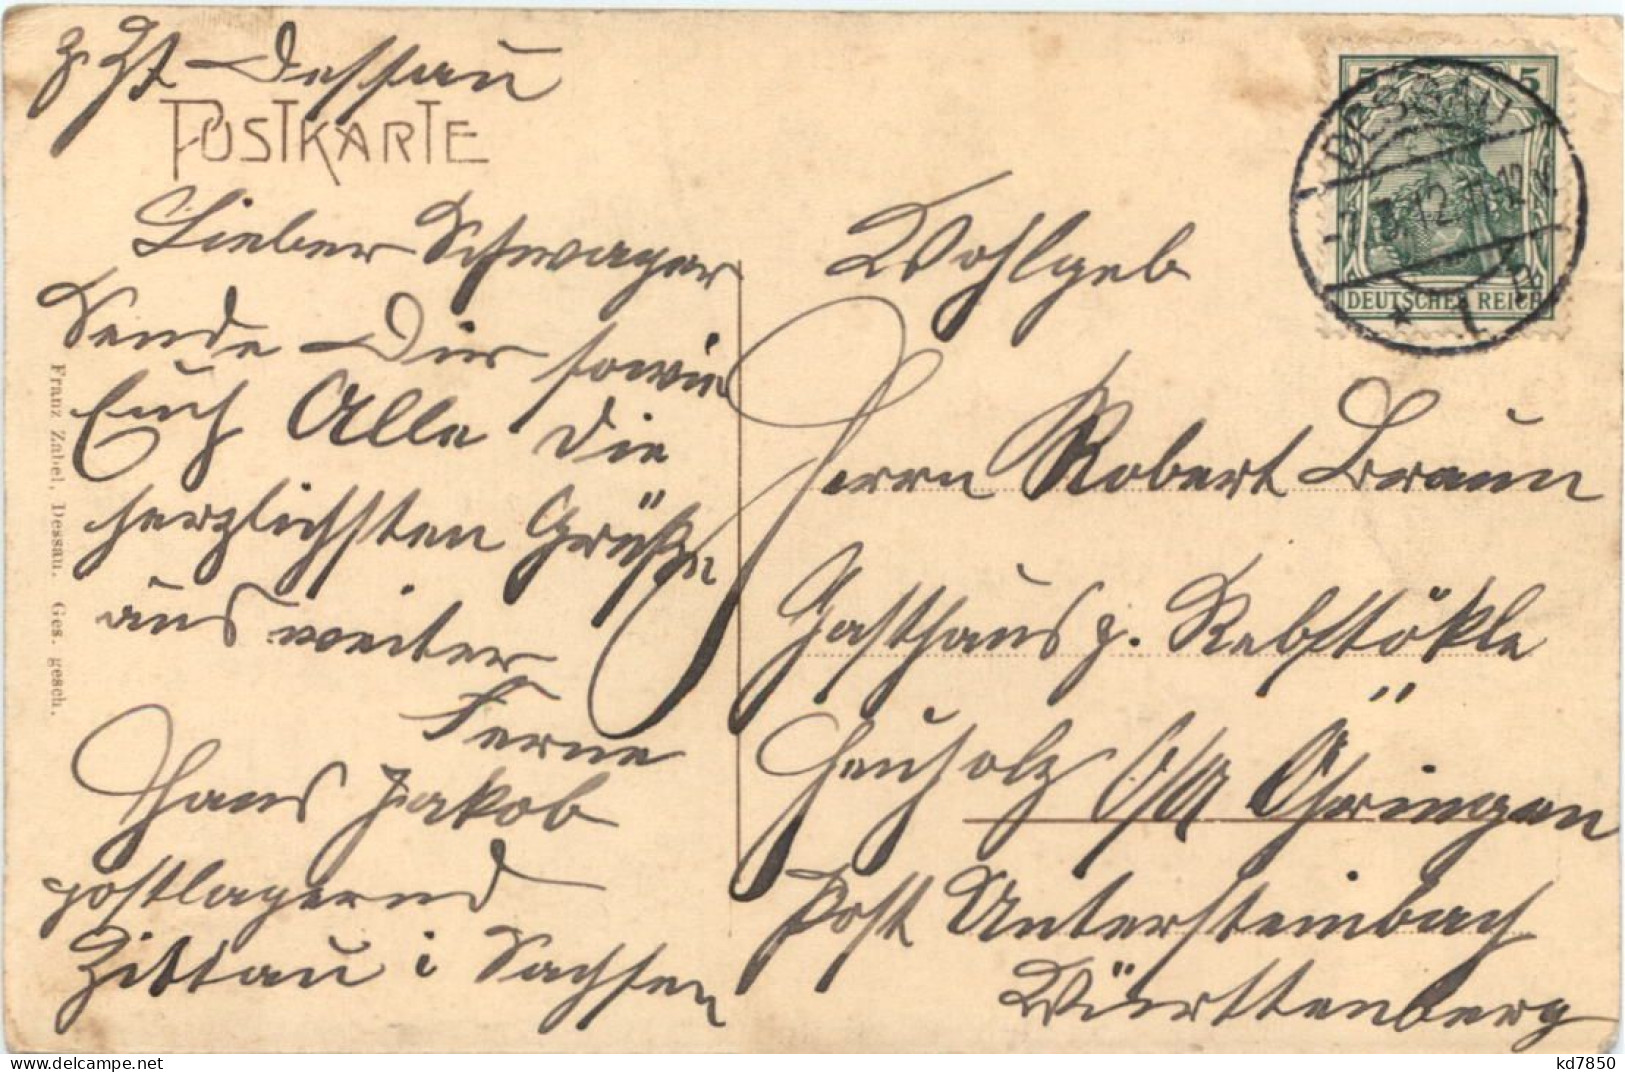 z. Zt Dessau
POSTKARTE
Lieber Schwager
Sende Dir sowie
Euch Alle die
herzlichsten Grüße
aus weiter
Ferne
Hans Jakob
postlagernd
Zittau i Sachsen
Franz Zabel, Dessau. Ges. gesch.
5 5
DESSAU
12
DEUTSCHES REICH
* 1
Wohlgeb
Herrn Robert Braun
Gasthaus z. Rebstökle
O/A Öhringen
Post Untersteinbach
Württenberg
kd7850